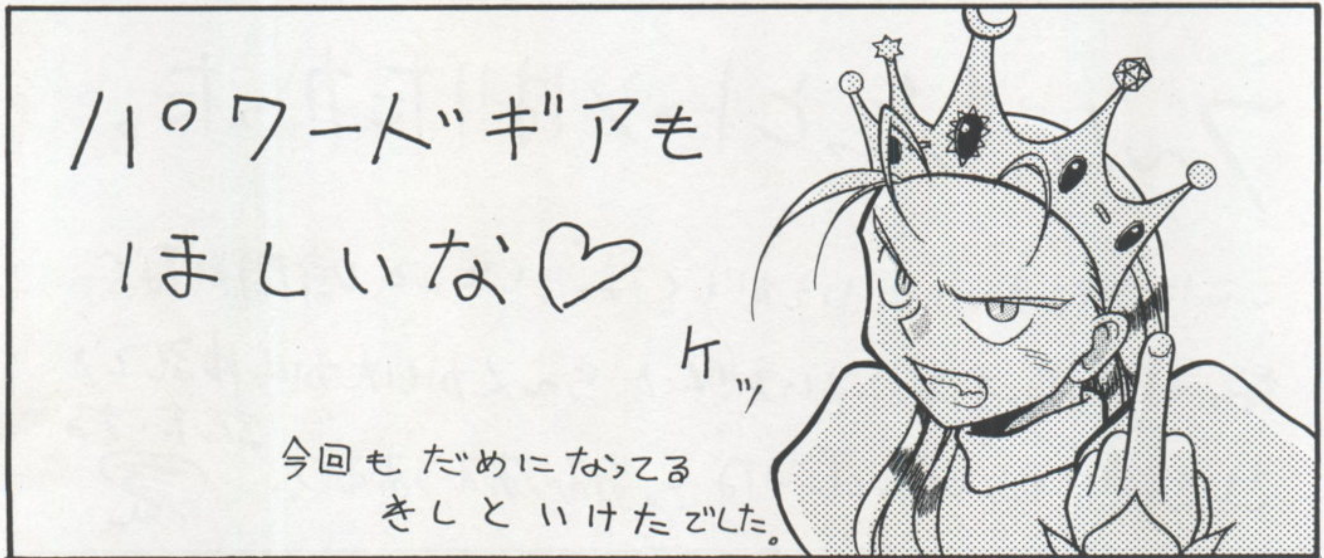 パワードギアも
ほしいな♡
ケッ
今回もだめになってる
きしといけたでした。